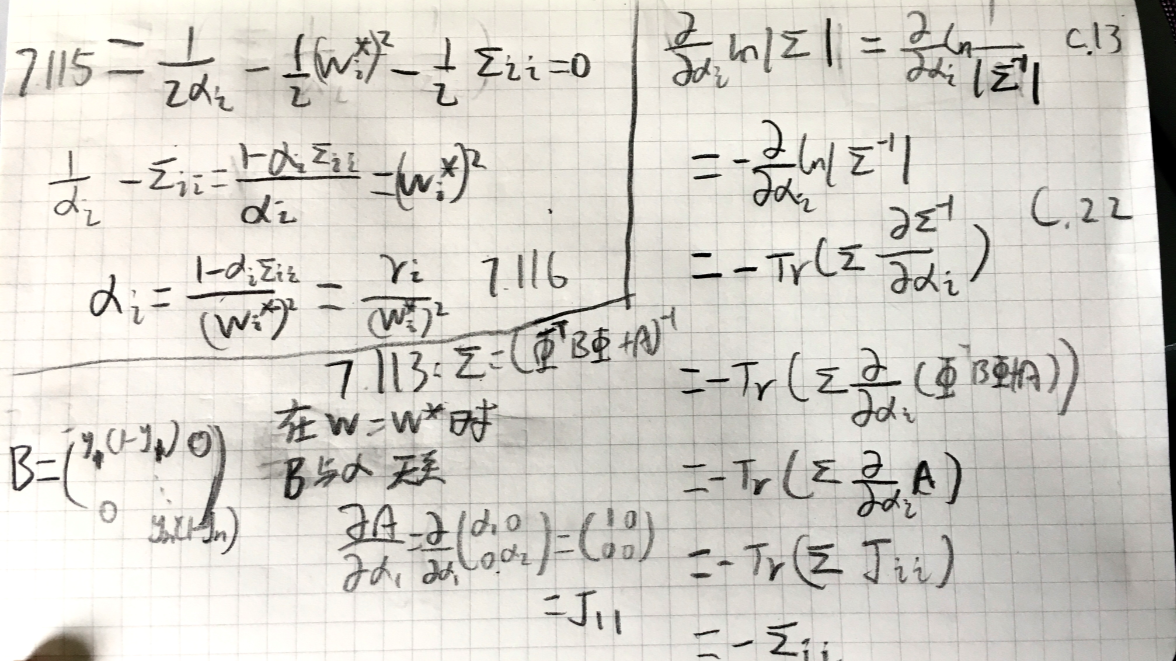 7.115 = 1/(2α_i) - 1/2 (w_i^*)^2 - 1/2 Σ_ii = 0
1/α_i - Σ_ii = (1-α_iΣ_ii)/α_i = (w_i^*)^2
α_i = (1-α_iΣ_ii)/(w_i^*)^2 = γ_i/(w_i^*)^2 7.116
7.113: Σ = (Φ^T BΦ+A)^-1
在 w = w* 时
B与α 无关
B = (y_1(1-y_1) 0
0 y_n(1-y_n))
∂A/∂α_1 = ∂/∂α_1 (α_1 0 0 α_2) = (1 0 0 0)
= J_11
∂/∂α_i ln|Σ| = ∂/∂α_i ln 1/|Σ^-1| C.13
= -∂/∂α_i ln|Σ^-1|
= -Tr(Σ ∂Σ^-1/∂α_i) C.22
= -Tr(Σ ∂/∂α_i (Φ^T BΦ+A))
= -Tr(Σ ∂/∂α_i A)
= -Tr(Σ J_ii)
= -Σ_ii